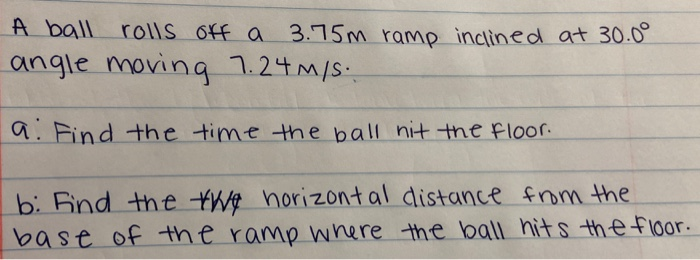 A ball rolls off a 3.75m ramp inclined at 30.0°
angle moving 7.24m/s.
a: Find the time the ball hit the floor.
b: Find the horizontal distance from the
base of the ramp where the ball hits the floor.